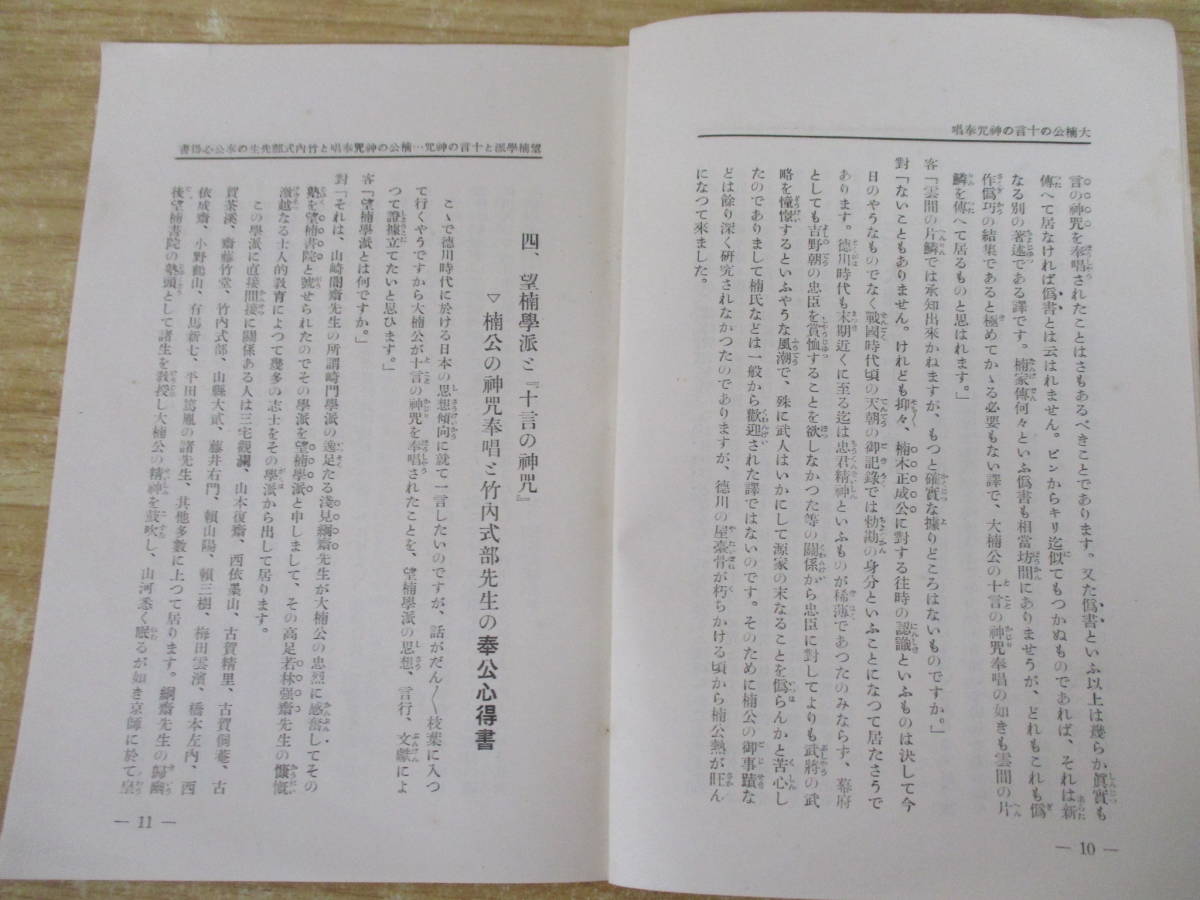 大楠公の十言の神咒奉唱
言の神咒を奉唱されたことはさもあるべきことであります。又た僞書といふ以上は幾らか眞實も
傳へて居なければ僞書とは云はれません。ピンからキリ迄似てもつかぬものであれば、それは新
なる別の著述である譯です。楠家傳何々といふ僞書も相當坊間にありませうが、どれもこれも僞
作僞巧の結集であると極めてかゝる必要もない譯で、大楠公の十言の神咒奉唱の如きも雲間の片
鱗を傳へて居るものと思はれます。」
客「雲間の片鱗では承知出來かねますが、もつと確實な據りどころはないものですか。」
對「ないこともありません。けれども抑々、楠木正成公に對する往時の認識といふものは決して今
日のやうなものでなく戰國時代頃の天朝の御記錄では勅勘の身分といふことになつて居たさうで
あります。德川時代も末期近くに至る迄は忠君精神といふものが稀薄であつたのみならず、幕府
としても吉野朝の忠臣を賞恤することを欲しなかつた等の關係から忠臣に對してよりも武將の武
略を憧憬するといふやうな風潮で、殊に武人はいかにして源家の末なることを僞らんかと苦心し
たのでありまして楠氏などは一般から歡迎された譯ではないのです。そのために楠公の御事蹟な
どは餘り深く硏究されなかつたのでありますが、德川の屋臺骨が朽ちかける頃から楠公熱が旺ん
になつて來ました。
— 10 —
望楠學派と十言の神咒…楠公の神咒奉唱と竹內式部先生の奉公心得書
四、望楠學派と『十言の神咒』
▽楠公の神咒奉唱と竹內式部先生の奉公心得書
こゝで德川時代に於ける日本の思想傾向に就て一言したいのですが、話がだん〳〵枝葉に入つ
て行くやうですから大楠公が十言の神咒を奉唱されたことを、望楠學派の思想、言行、文獻によ
つて證據立てたいと思ひます。」
客「望楠學派とは何ですか。」
對「それは、山崎闇齋先生の所謂崎門學派の逸足たる淺見絅齋先生が大楠公の忠烈に感奮してその
塾を望楠書院と號せられたのでその學派を望楠學派と申しまして、その高足若林强齋先生の慷慨
激越なる士人的敎育によつて幾多の志士をその學派から出して居ります。
この學派に直接間接に關係ある人は三宅觀瀾、山本復齋、西依墨山、古賀精里、古賀侗菴、古
賀茶溪、齋藤竹堂、竹內式部、山縣大貳、藤井右門、賴山陽、賴三樹、梅田雲濱、橋本左內、西
依成齋、小野鶴山、有馬新七、平田篤胤の諸先生、其他多數に上つて居ります。絅齋先生の歸幽
後望楠書院の塾頭として諸生を敎授し大楠公の精神を鼓吹し、山河悉く眠るが如き京師に於て皇
— 11 —